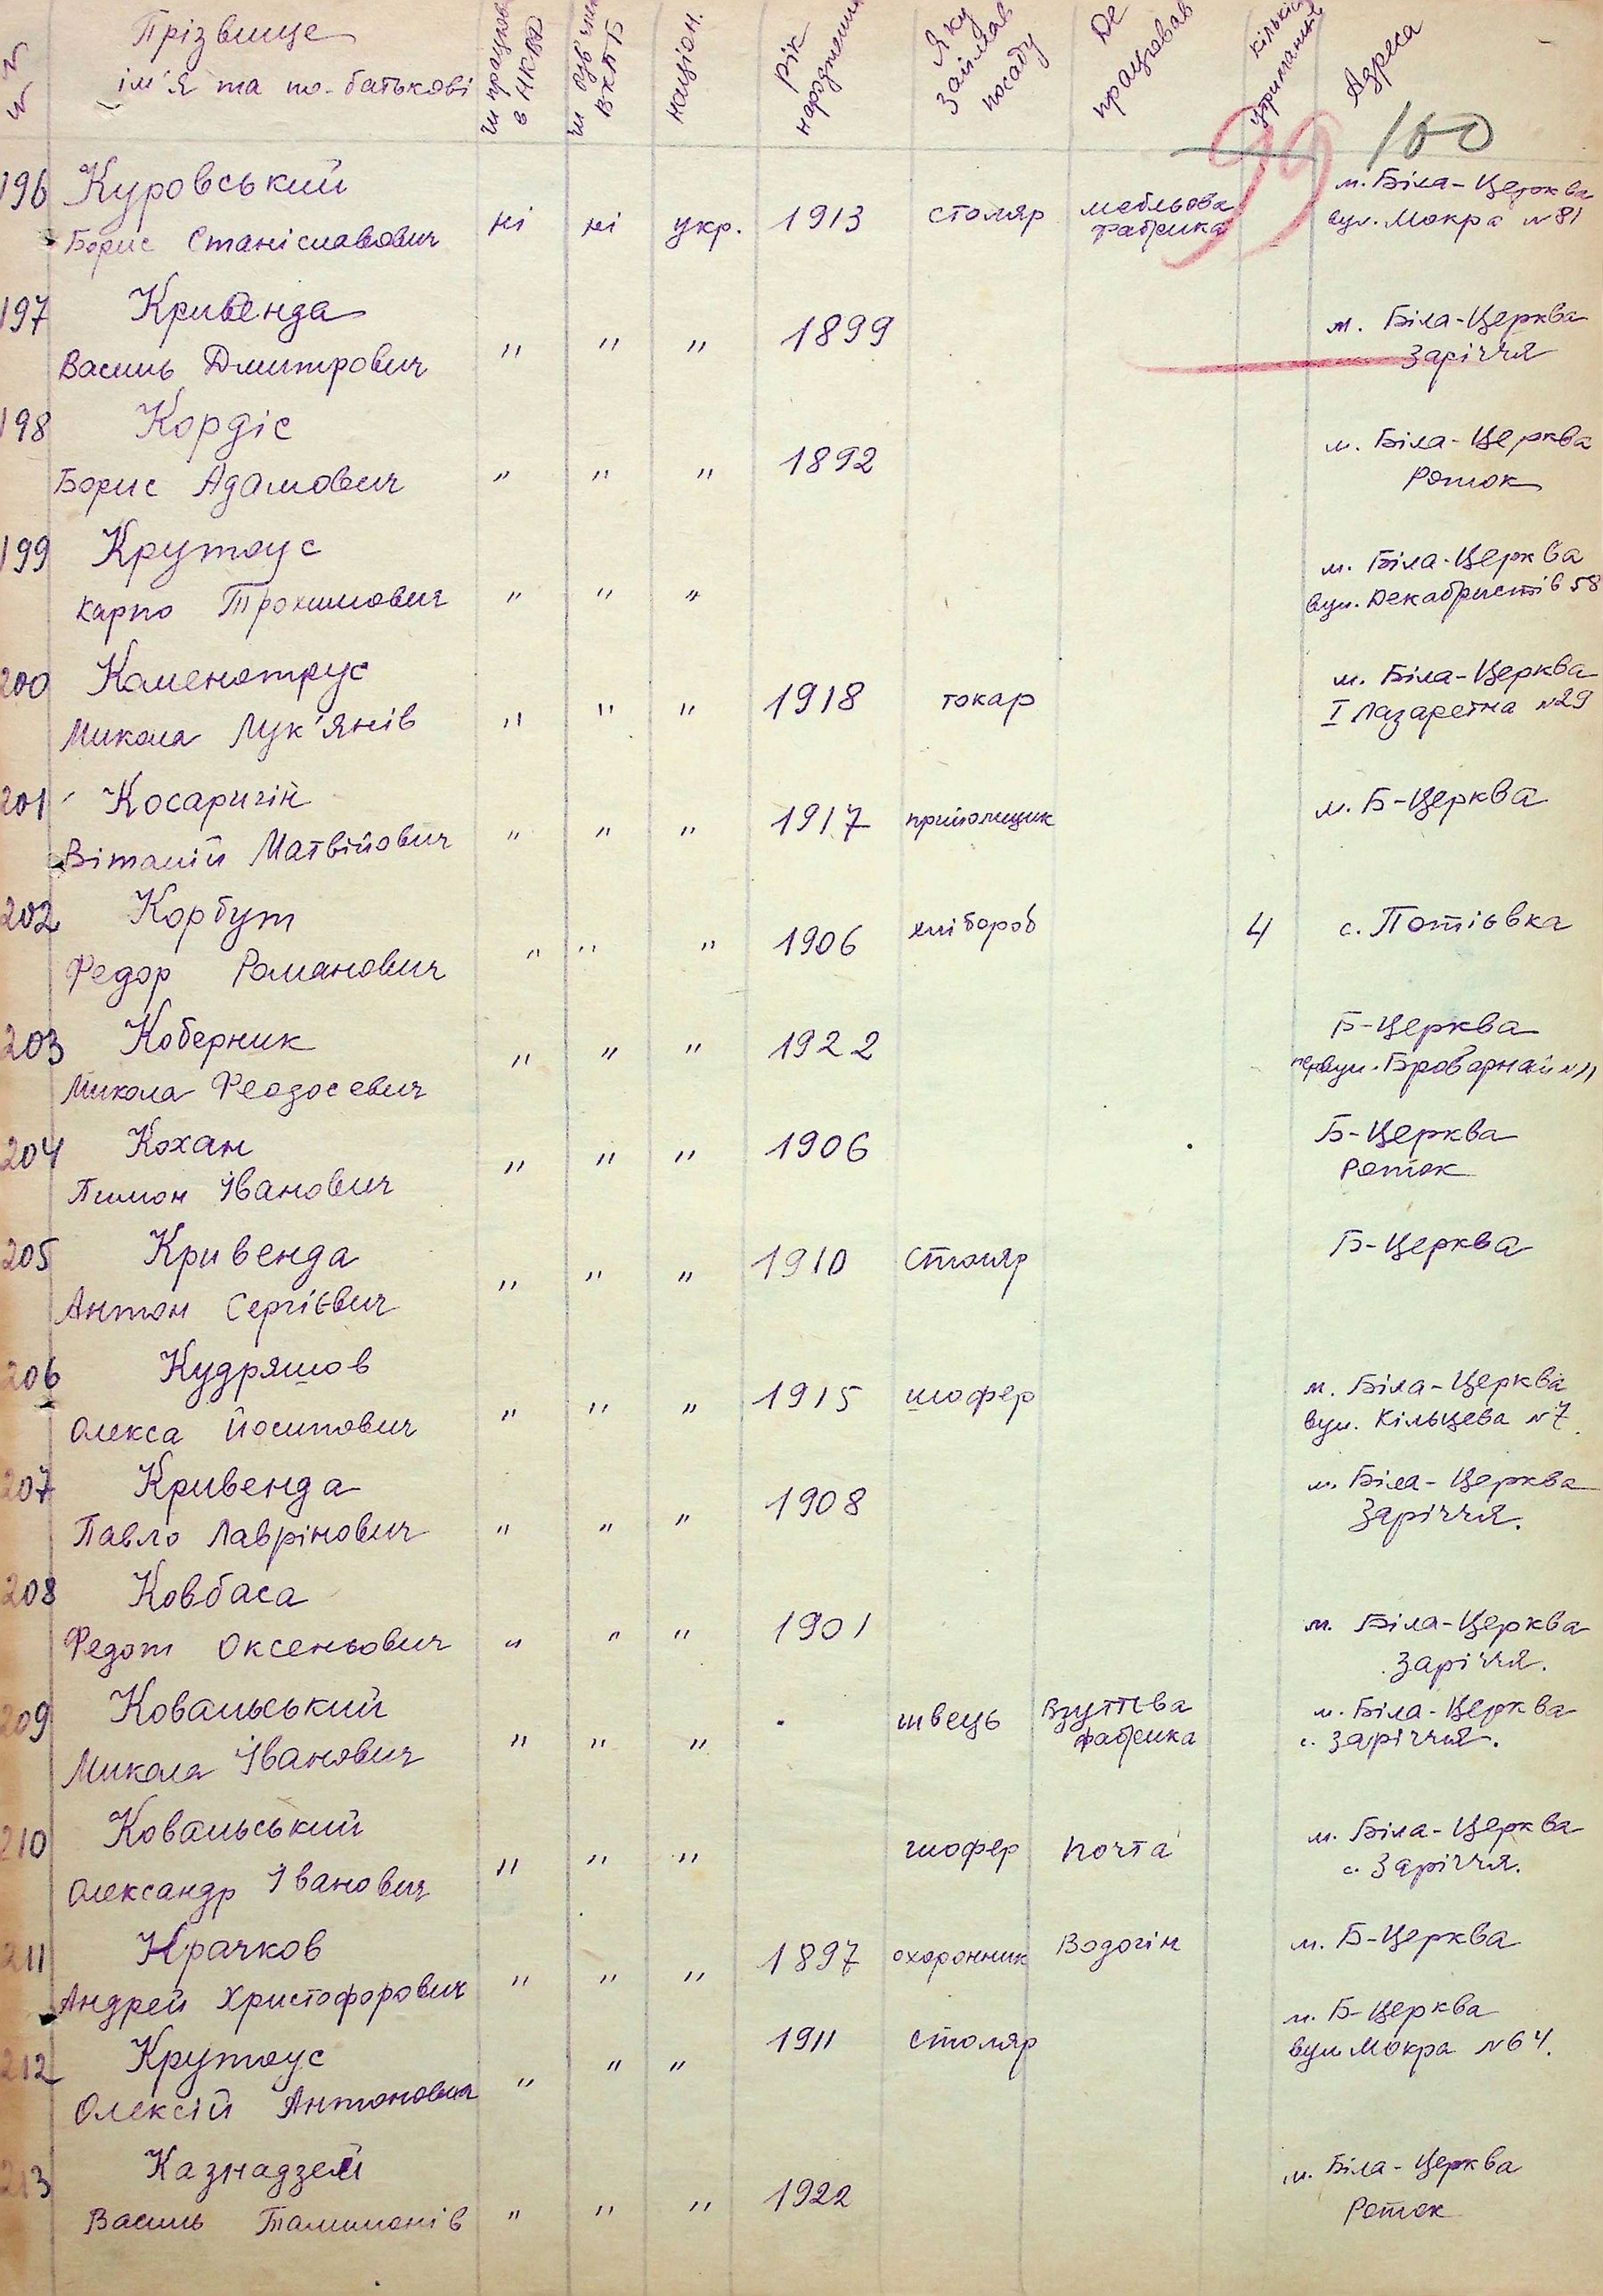 № № Прізвище ім'я та по-батькові чи працював в НКВД чи був член ВКПБ націон. рік народження Яку займав посаду Де працював кількість утриманців Адреса
99 100
196 Куровський м. Біла-Церква
Борис Станіславович ні ні укр. 1913 столяр мебльова фабрика вул. Мокра №81
197 Кривенда м. Біла-Церква
Василь Дмитрович " " " 1899 Заріччя
198 Кордіс м. Біла-Церква
Борис Адамович " " " 1892 Роток
199 Крутоус м. Біла-Церква
Карпо Трохимович " " " вул. Декабристів 58
200 Каменотрус м. Біла-Церква
Микола Лук'янів " " " 1918 токар I Лазаретна №29
201 Косаригін м. Б-Церква
Віталій Матвійович " " " 1917 прийомщик
202 Корбут с. Потіївка
Федор Романович " " " 1906 хлібороб 4
203 Коберник Б-Церква
Микола Феодосевич " " " 1922 Броварнай №11
204 Кохан Б-Церква
Пимон Іванович " " " 1906 Роток
205 Кривенда Б-Церква
Антон Сергієвич " " " 1910 столяр
206 Кудряшов м. Біла-Церква
Олекса Йосипович " " " 1915 шофер вул. Кільцева №7
207 Кривенда м. Біла-Церква
Павло Лаврінович " " " 1908 Заріччя.
208 Ковбаса м. Біла-Церква
Федот Оксеньович " " " 1901 Заріччя.
209 Ковальський м. Біла-Церква
Микола Іванович " " " швець Взуттєва фабрика с. Заріччя.
210 Ковальський м. Біла-Церква
Олександр Іванович " " " шофер почта с. Заріччя.
211 Крачков м. Б-Церква
Андрей Христофорович " " " 1897 охоронник Водогін
212 Крутоус м. Б-Церква
Олексій Антонович " " " 1911 столяр вул Мокра №64.
213 Казнадзей м. Біла-Церква
Василь " " " 1922 Роток